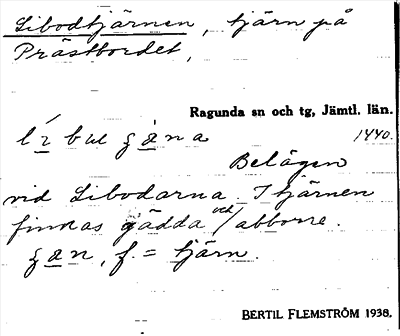 Libodtjärnen, tjärn på
Prästbordet,
Ragunda sn och tg, Jämtl. län.
1440.
Belägen
vid Libodarna. I tjärnen
finnas gädda och / abborre.
f. = tjärn.
BERTIL FLEMSTRÖM 1938.